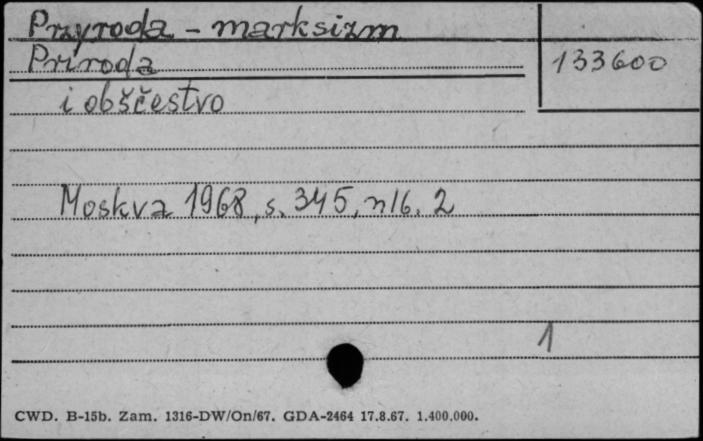 Przyroda - marksizm
Priroda
133600
i obščestvo
Moskva 1968, s. 345, nlb. 2
1
CWD. B-15b. Zam. 1316-DW/On/67. GDA-2464 17.8.67. 1.400.000.